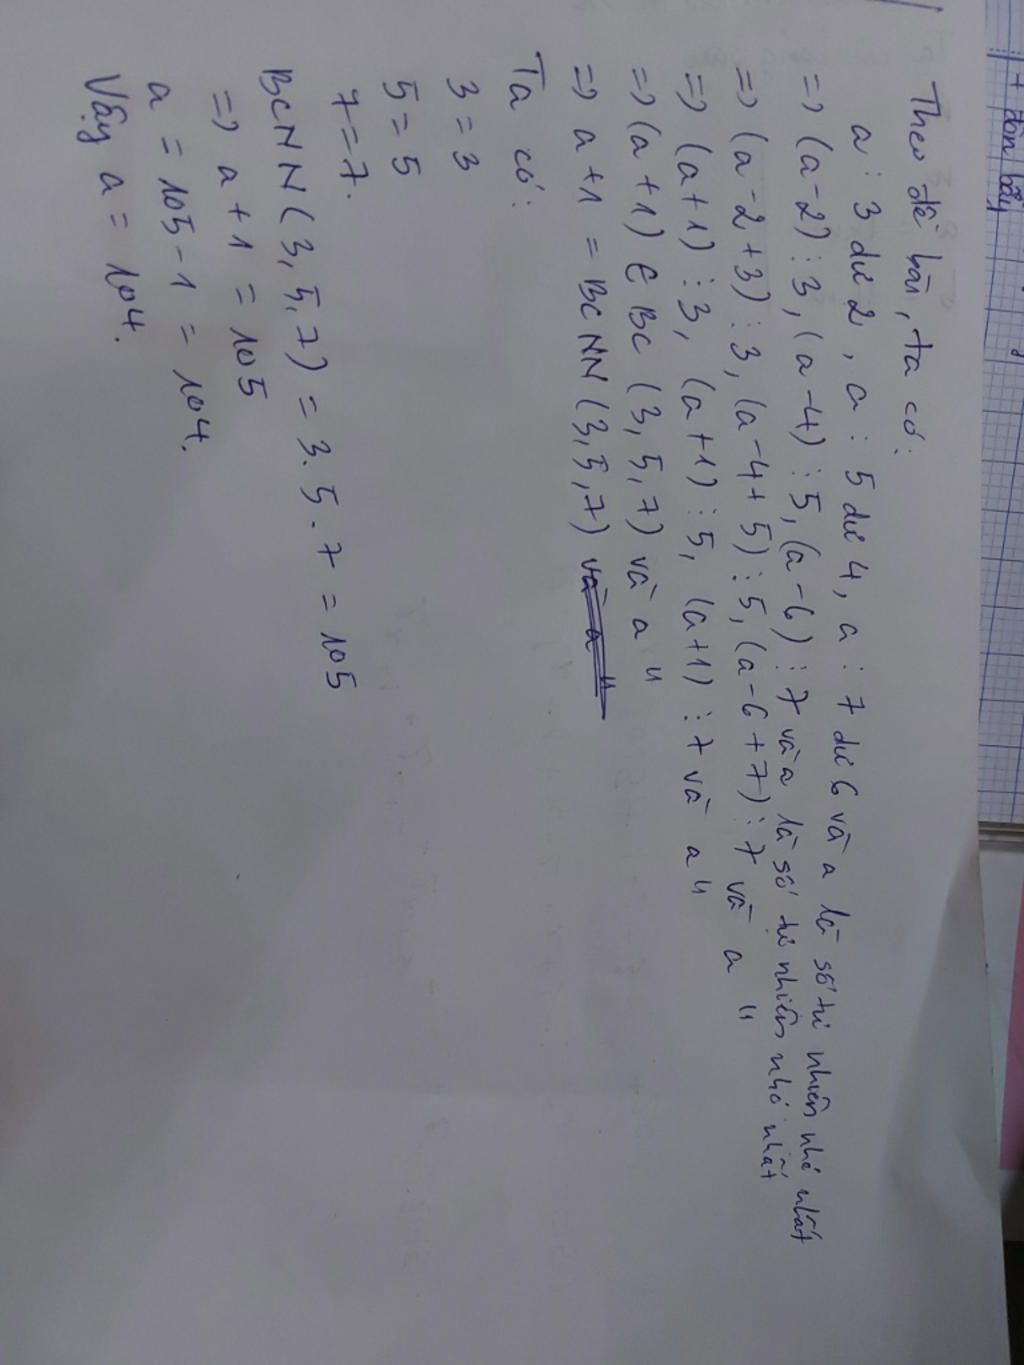 Theo đề bài, ta có:
a : 3 dư 2, a : 5 dư 4, a : 7 dư 6 và a là số tự nhiên nhỏ nhất
=> (a-2) ⋮ 3, (a-4) ⋮ 5, (a-6) ⋮ 7 và a là số tự nhiên nhỏ nhất
=> (a-2+3) ⋮ 3, (a-4+5) ⋮ 5, (a-6+7) ⋮ 7 và a "
=> (a+1) ⋮ 3, (a+1) ⋮ 5, (a+1) ⋮ 7 và a "
=> (a+1) ∈ BC (3, 5, 7) và a "
=> a+1 = BCNN (3, 5, 7) và a "
Ta có:
3 = 3
5 = 5
7 = 7.
BCNN (3, 5, 7) = 3. 5. 7 = 105
=> a + 1 = 105
a = 105 - 1 = 104.
Vậy a = 104.
+ đòn bẩy